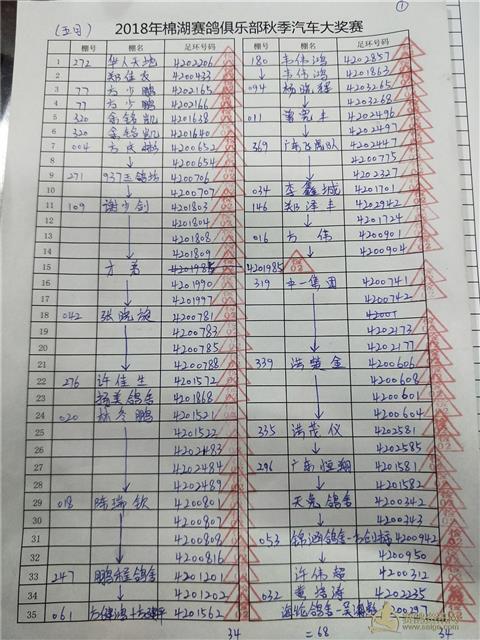 ①
(五日)
2018年棉湖赛鸽俱乐部秋季汽车大奖赛
棚号 棚名 足环号码 棚号 棚名 足环号码
1 272 华人天地 4202206 180 韦伟鸿 4202857
2 郑佳农 4200433 ↓ 韦伟鸿 4201863
3 77 方少鹏 4202165 094 杨晓辉 4203265
4 77 方少鹏 4202166 4203268
5 320 余锦凯 4201638 011 4202496
6 320 余锦凯 4201640 4202497
7 004 4200652 369 广东飞虎队 4202447
8 4200654 4200775
9 271 937王鸽坊 4200706 4202327
10 4200707 034 李鑫城 4201701
11 109 谢少剑 4201803 146 郑泽丰 4202942
12 4201804 4201724
13 4201808 016 方伟 4200901
14 4201809 4200904
15 方弟 4201985 4201985
16 4201990 319 中一集团 4200741
17 4201997 4200742
18 042 张晓波 4200781 42007
19 4200783 4202173
20 4200785 4202177
21 4200788 339 洪楚金 4200606
22 276 许佳生 4201572 4200608
23 扬美鸽舍 4201868 4200601
24 020 林冬鹏 4201521 4200604
25 4201522 335 洪茂仪 4202581
26 4202483 4202585
27 4202484 296 广东恒翔 4201581
28 4202489 4201582
29 018 陈瑞钦 4200801 天兔鸽舍 4200342
30 4200807 4200343
31 4200808 053 锦涵鸽舍 4200942
32 4200816 4200950
33 247 鹏程鸽舍 4201201 许伟超 4200312
34 4201202 032 4202235
35 061 4201562 海伦鸽舍 4200297
34 =68 34